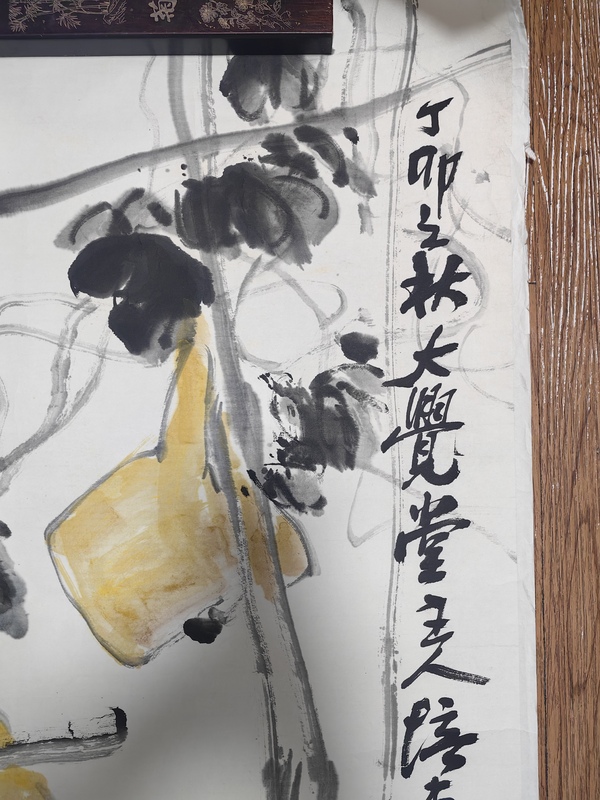 丁卯之秋大覺堂主人培